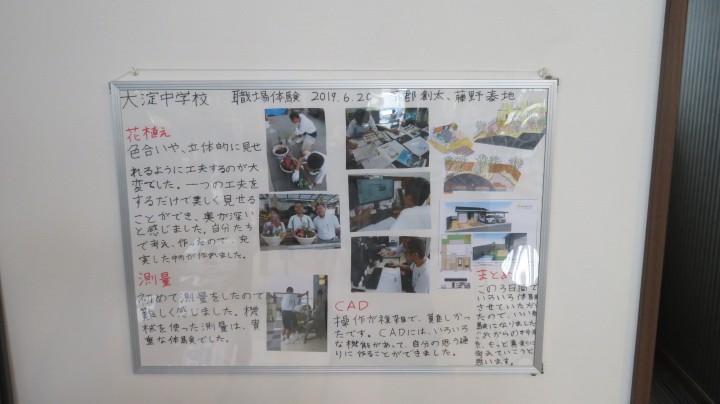 大淀中学校 職場体験 2019.6.20 郡創太、藤野泰地
花植え
色合いや、立体的に見せ
れるように工夫するのが大
変でした。一つの工夫を
するだけで美しく見せる
ことができ、奥が深い
と感じました。自分たち
で考え、作ったので、充
実した物が作れました。
測量
初めて測量をしたので
難しく感じました。機
械を使った測量は、貴
重な体験でした。
CAD
操作が複雑で、難しかっ
たです。CADには、いろいろ
な機能があって、自分の思う通
りに作ることができました。
まとめ
この3日間で
いろいろ体験
させていただい
たので、いい経
験になりました
これからの
を、もっと真剣に
考えていこうと
思います。